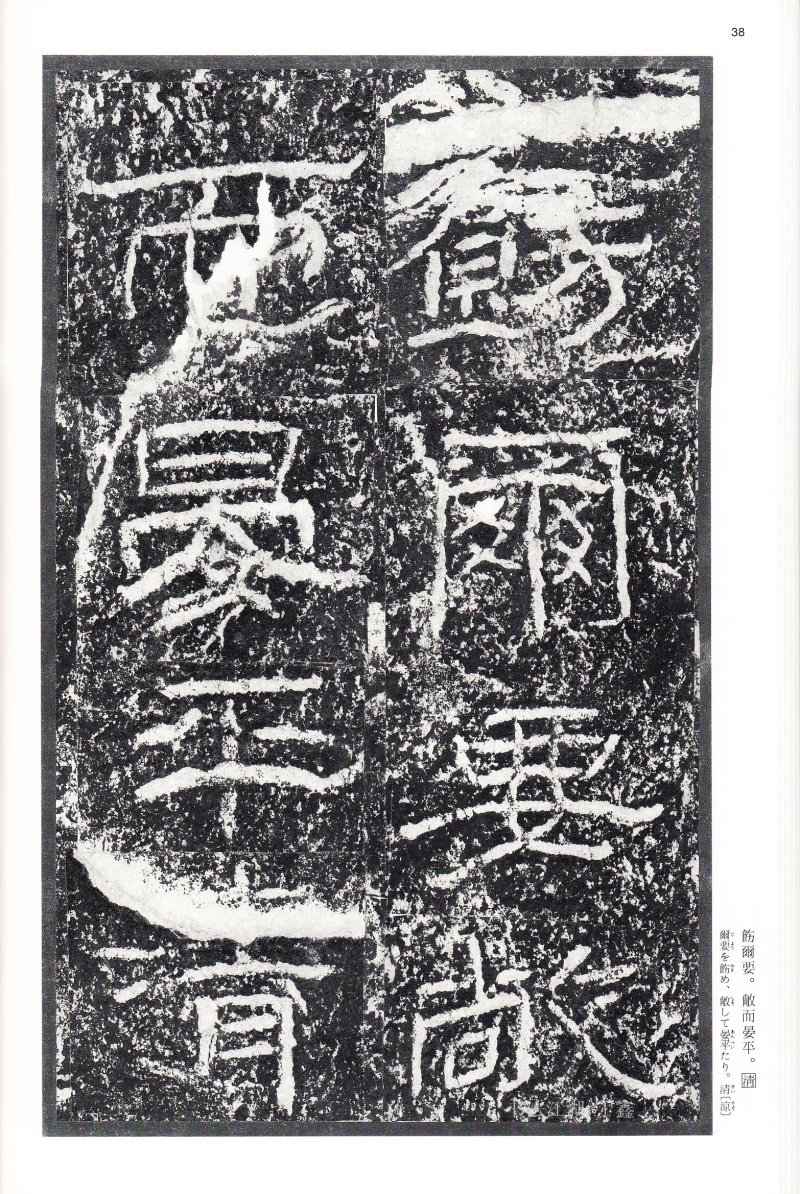 38
飭爾要敞
而晏平清
飭爾要。敞而晏平。清
爾要を飭め、敞して晏平たり。清〔涼〕